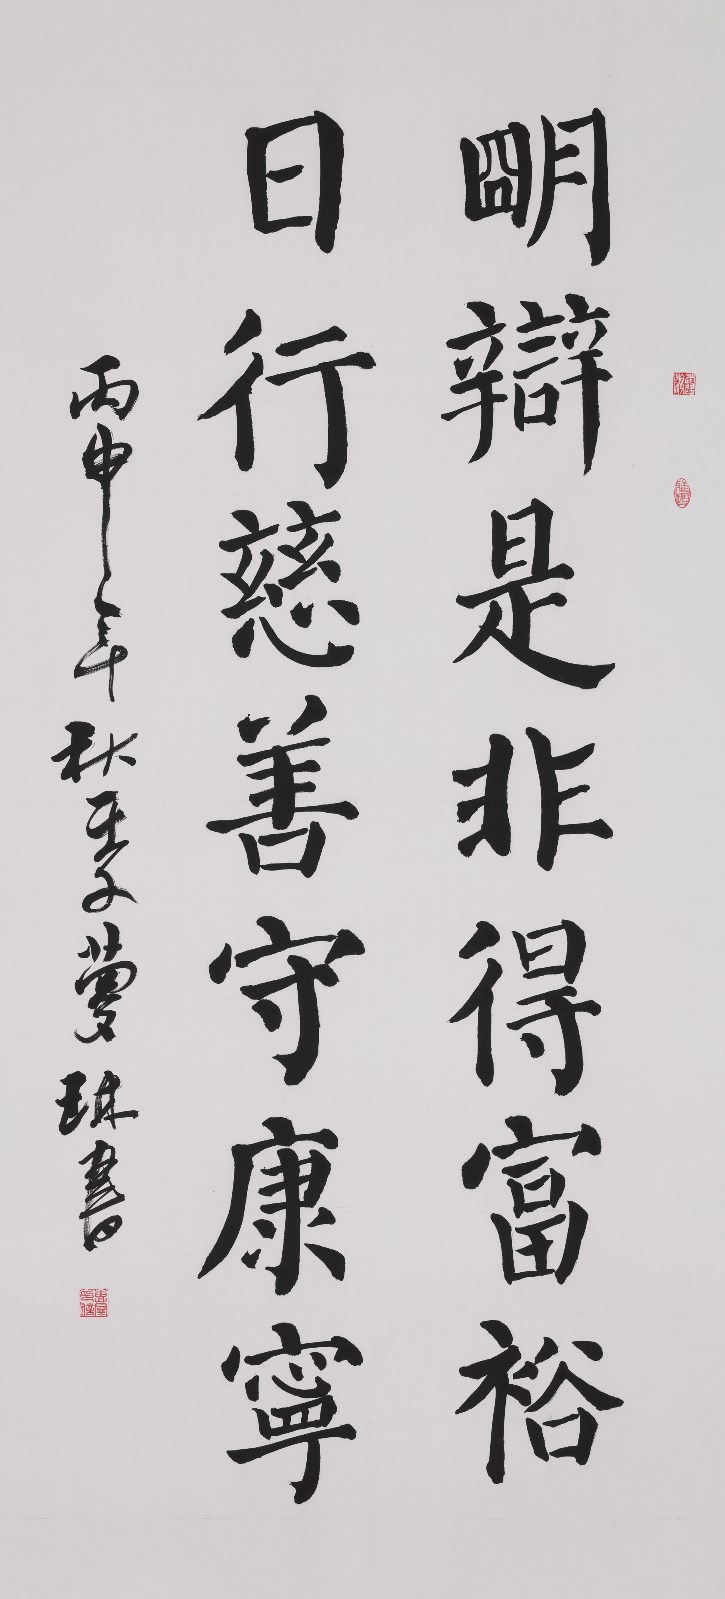 朙辯是非得富裕
日行慈善守康寧
丙申年秋夢琳書